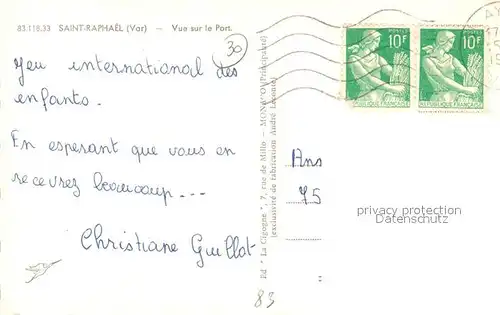 83.118.33 SAINT-RAPHAËL (Var) — Vue sur le Port.
30
Jeu international des
enfants.
En esperant que vous en
recevrez beaucoup ---
Christiane Guillot
83
Ed " La Cigogne ", 7, rue de Millo - MONACO (Principauté)
(exclusivité de fabrication André Leconte)
POSTES
10F
REPUBLIQUE FRANÇAISE
POSTES
10F
REPUBLIQUE FRANÇAISE
Ans
75
privacy protection
Datenschutz